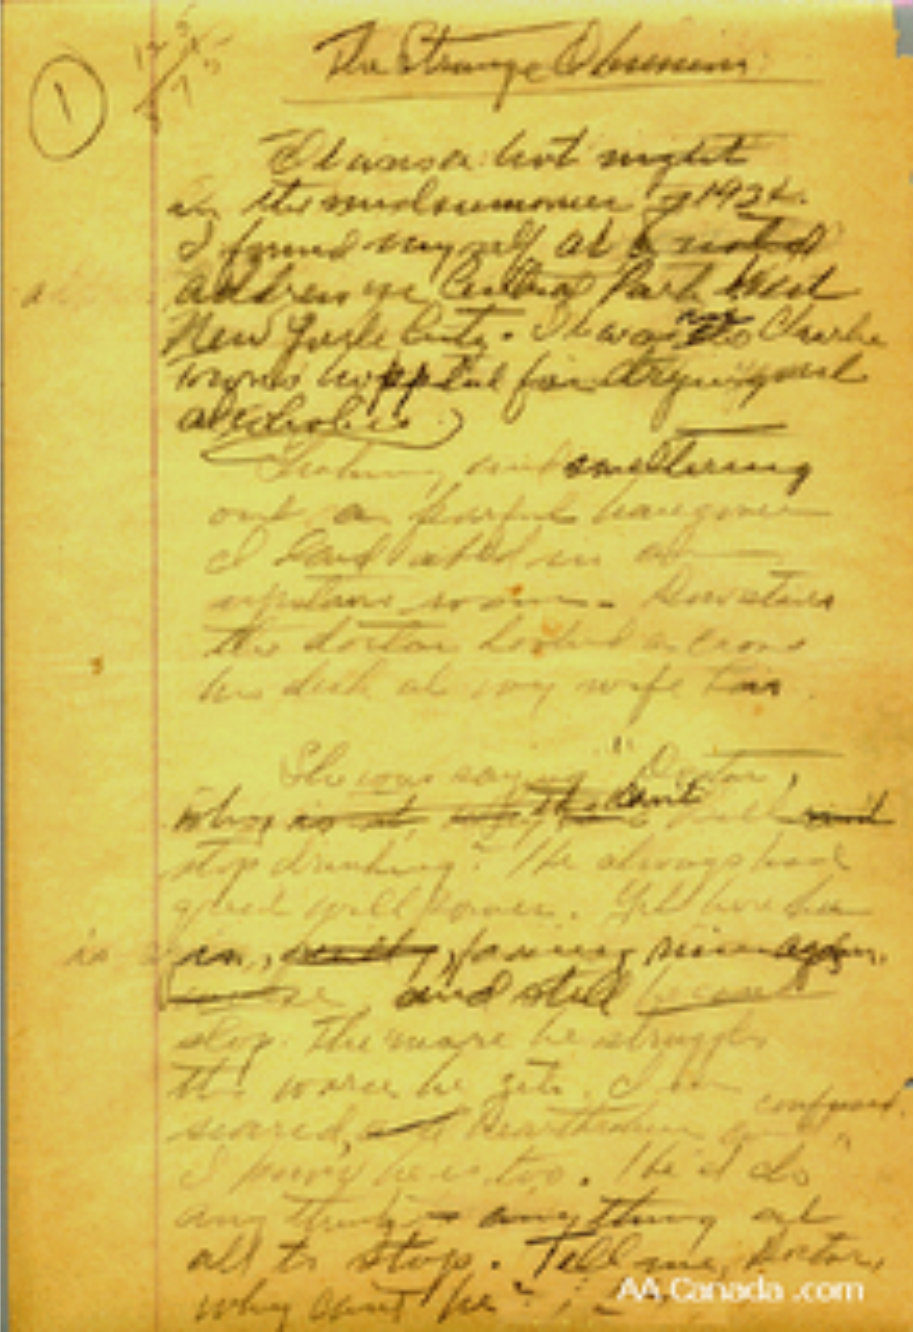 1
The Strange Obsession
It was a hot night
in the midsummer of 1934.
I found myself at a noted
address in Central Park West
New York City. It was Charlie
Towns hospital for drying out
alcoholics.
and sweltering
out a fearful hangover
I laid abed in an
upstairs room. Downstairs
the doctor looked across
his desk at my wife Lois.
She was saying "Doctor,
why can't
stop drinking? He always had
great will power. Yet here he
is in, facing ruin again,
and still
stop. The more he struggles
the worse he gets. I'm
scared, heartbroken and confused.
I know he is too. He'd do
anything - anything at
all to stop. Tell me, Doctor,
why can't he"
AA-Canada.com